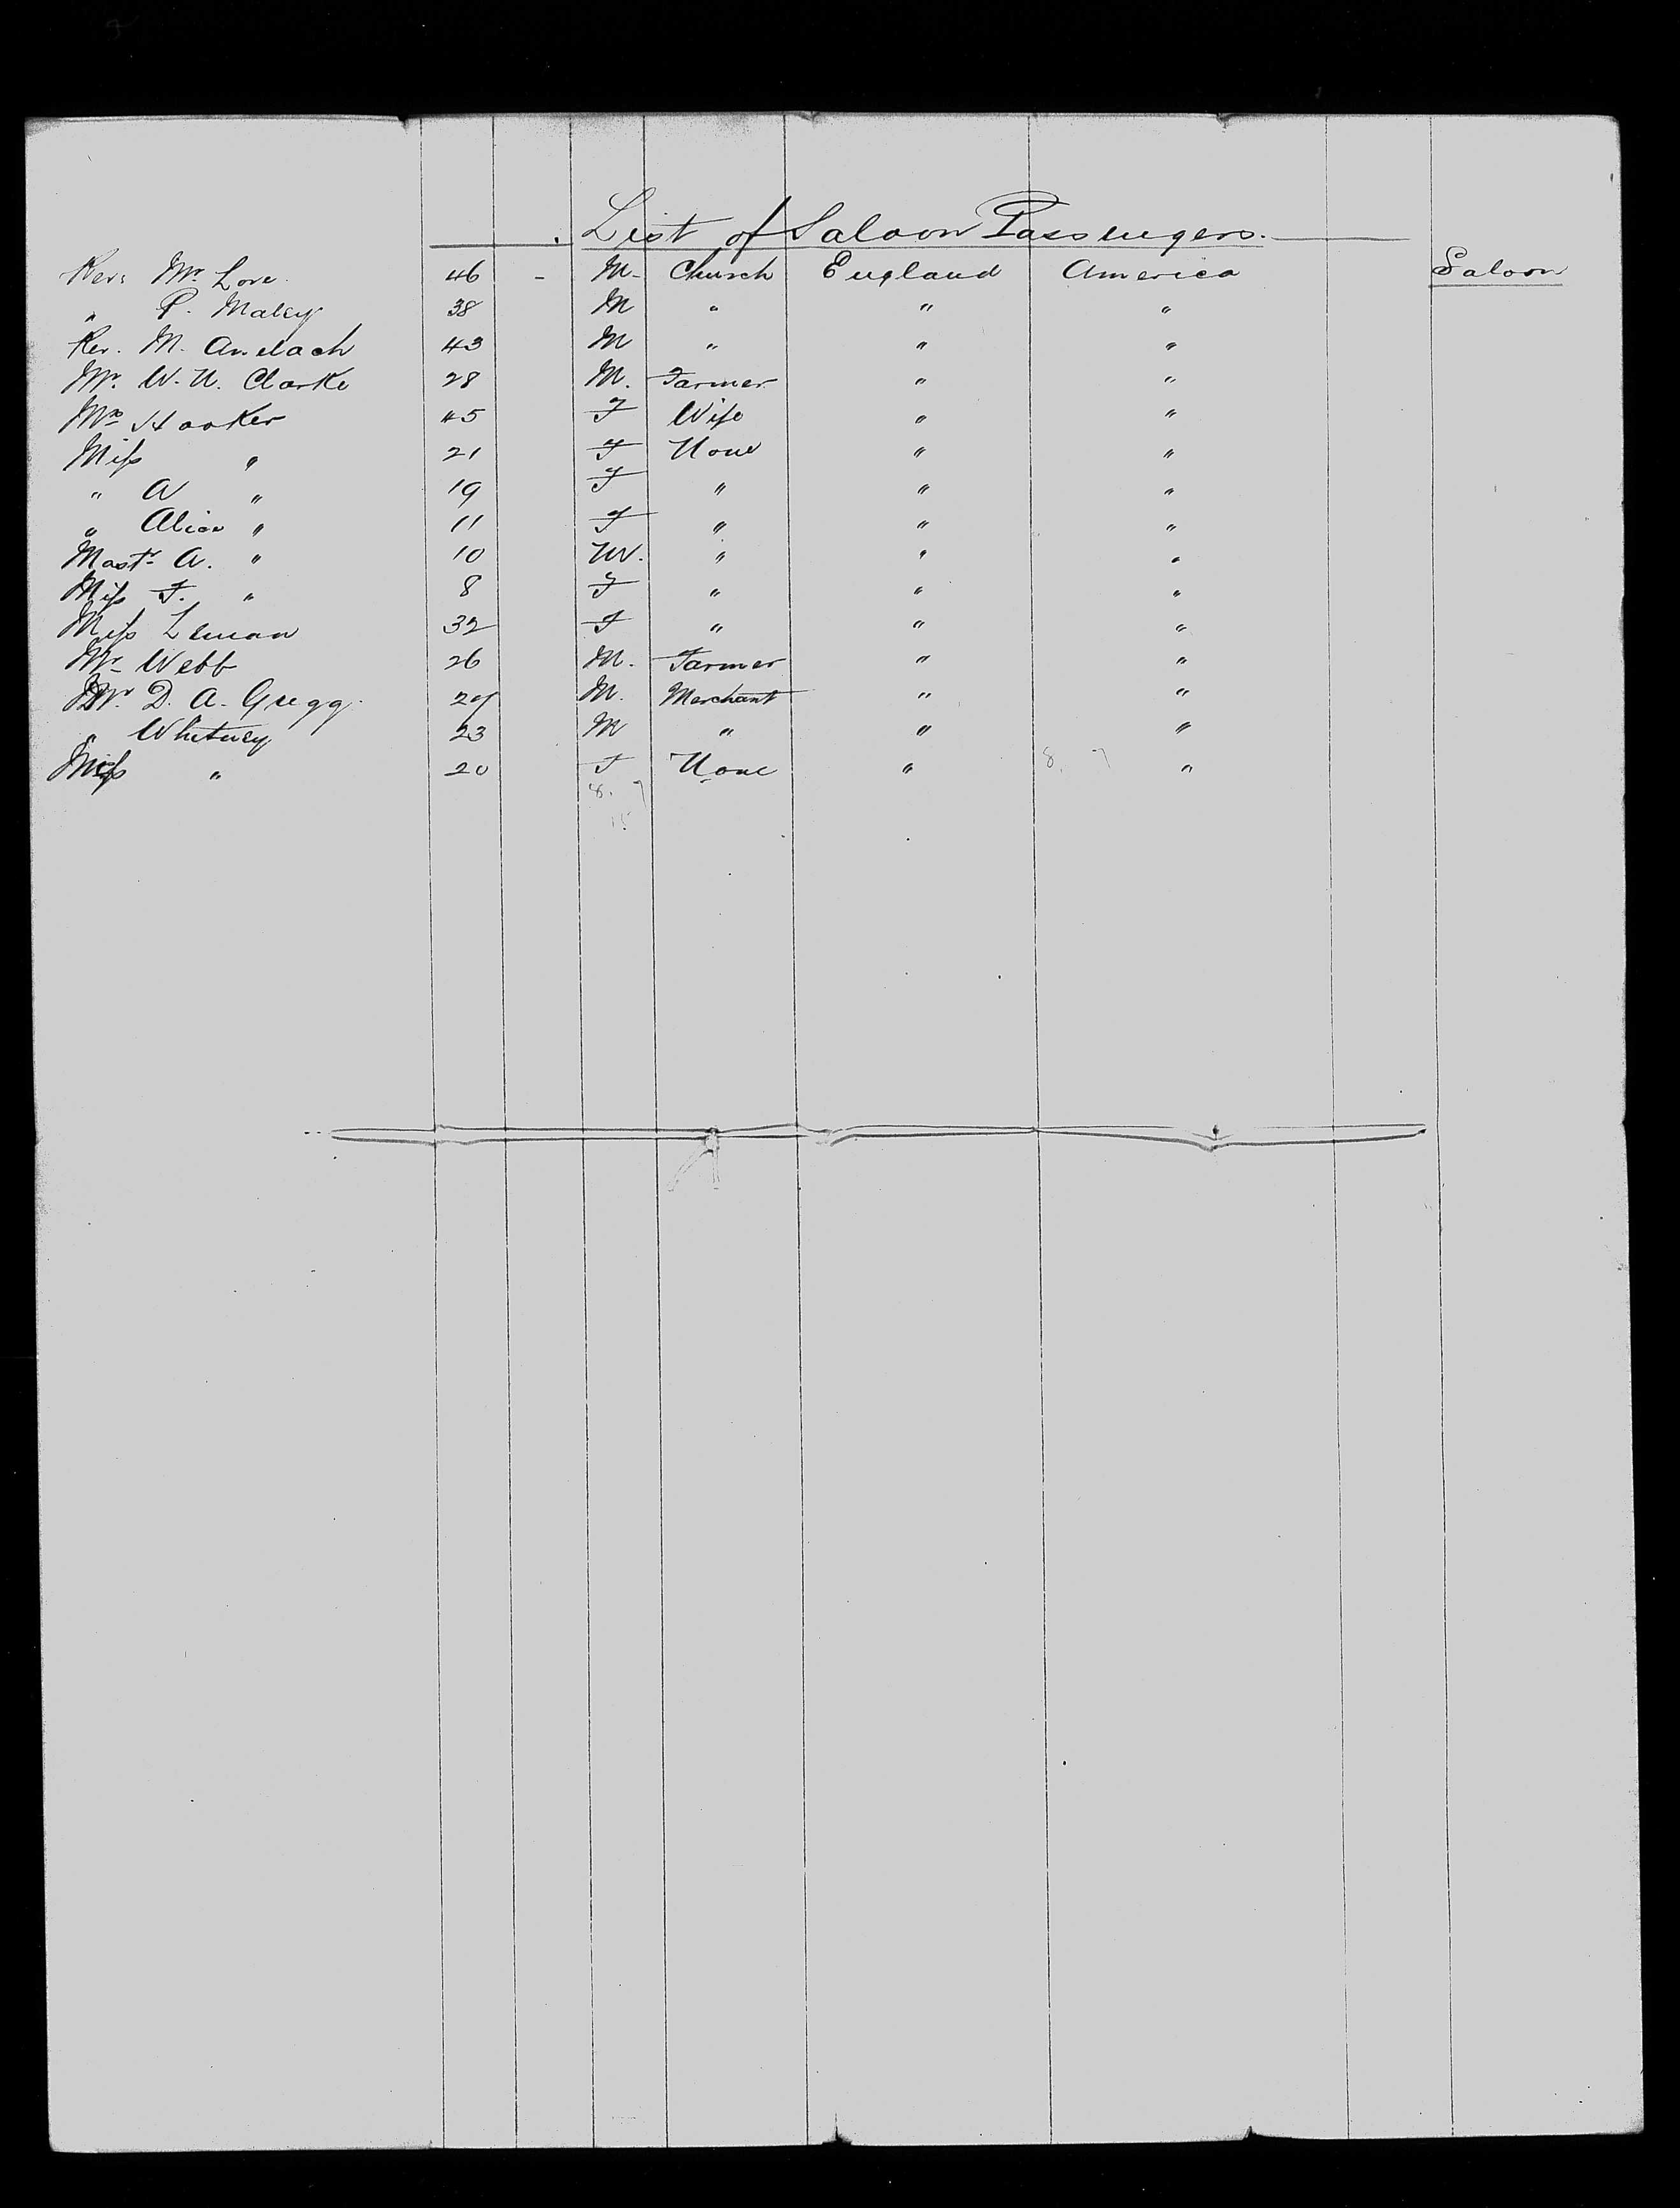 List of Saloon Passengers.
Rev: Mr. Love 46 - M- Church England America Saloon
" P. Maley 38 M " " "
Rev. M. 43 M " " "
Mr. W. N. Clarke 28 M. Farmer " "
Mrs Hooker 45 F Wife " "
Miss " 21 F None " "
" A " 19 F " " "
" Alice " 11 F " " "
Mastr A. " 10 M. " " "
Miss F. " 8 F " " "
Miss Leman 32 F " " "
Mr Webb 26 M. Farmer " "
Mr. D. A. Gregg. 29 M. Merchant " "
" Whitney 23 M " " "
Miss " 20 F None " 8. 7 "
8. 7
15